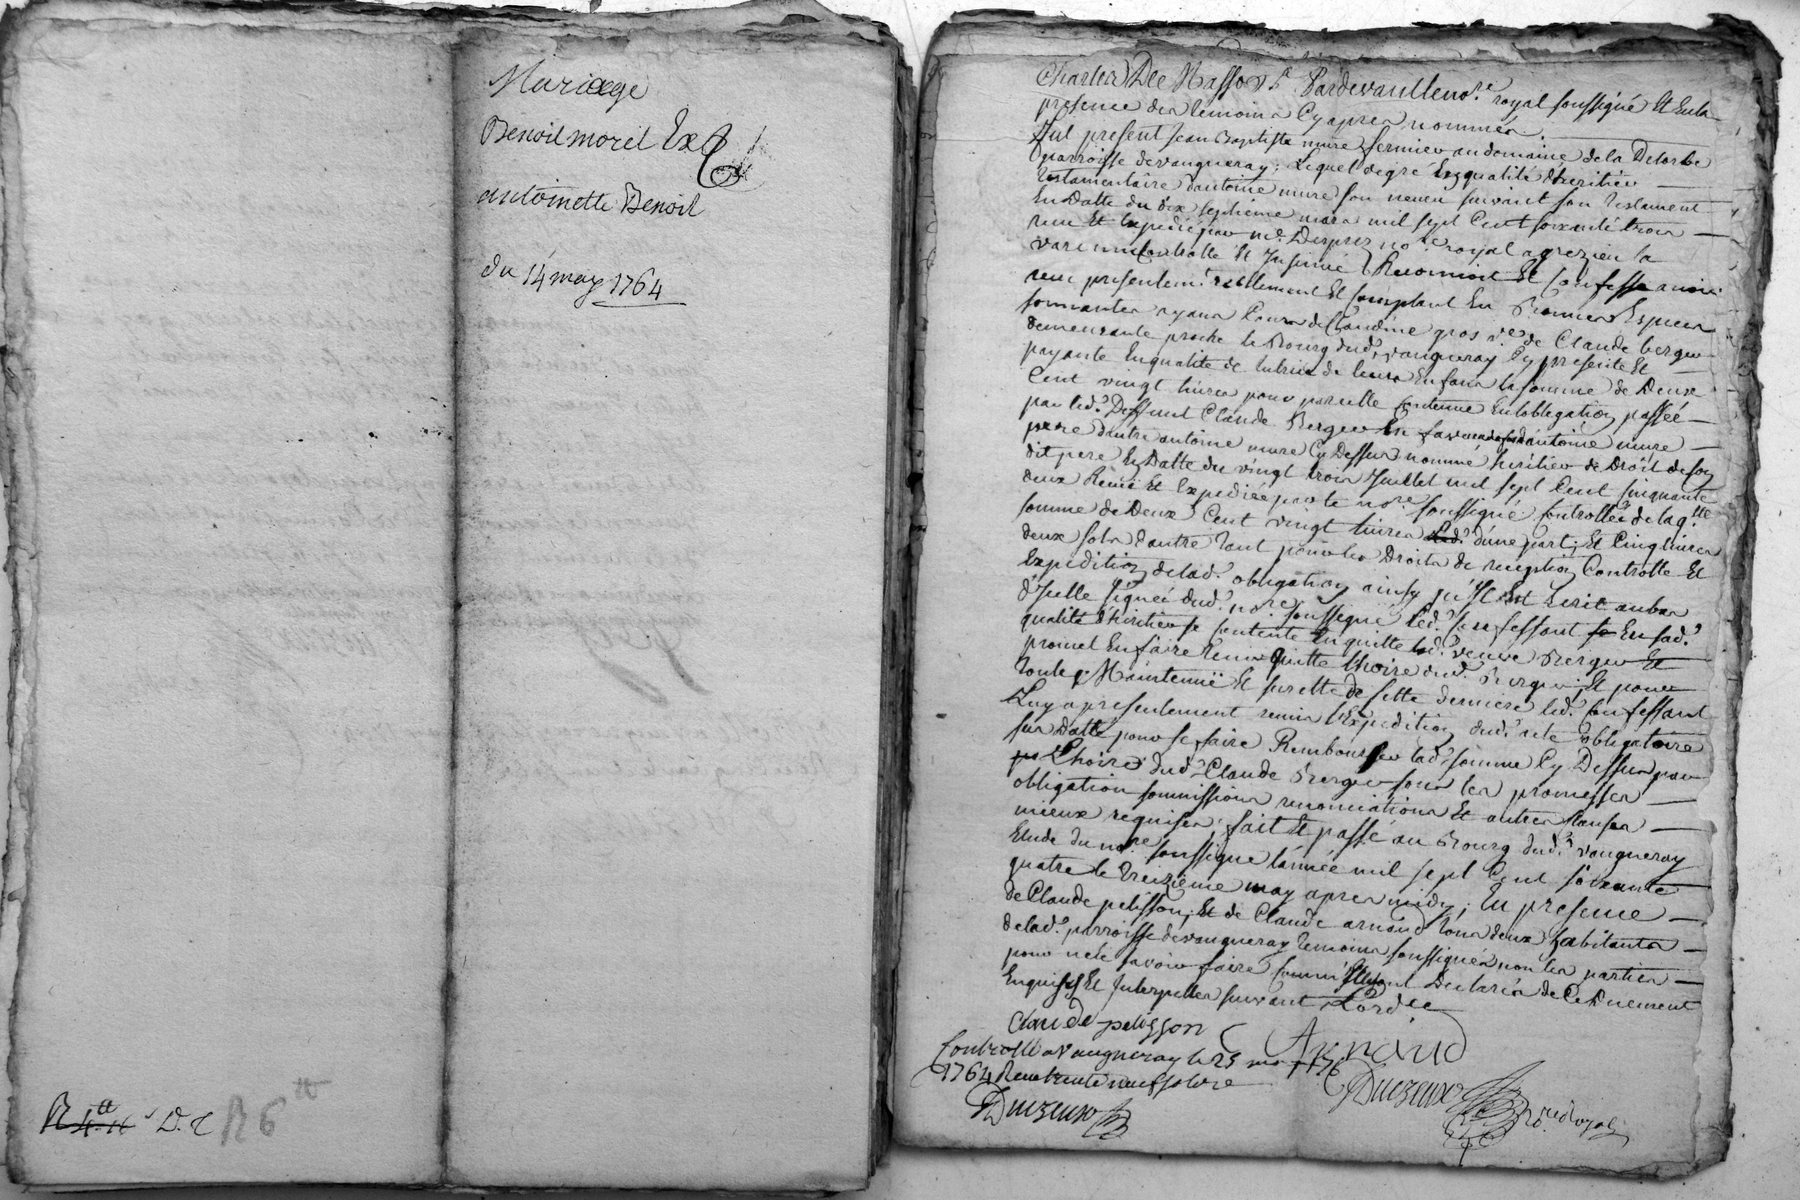 Mariage
Benoit morel Ex
antoinette Benoit
du 14 may 1764
D. R 6
Pardevant le no.re royal soussigné Et En la
presence des temoins Cy apres nommés
fut present Jean Baptiste mure fermier au domaine de la Delorbe
parroisse de vaugneray; Lequel de gré En qualité d'heritier
testamentaire d'antoine mure son neveu suivant son testament
En datte du dix septieme mars mil sept Cent soixante trois
receu Et Expedié par me. Desprez no.re royal a grezieu la
varenne Controllé Et Insinué Reconnoit Et Confesse avoir
receu presentem.t réellement Et Comptant En bonnes Especes
sonnantes ayant Cours de Claudine gros v.ve de Claude berger
demeurante proche le Bourg dud. vaugneray Cy presente Et
payante En qualité de tutrice de leurs Enfans la somme de Deux
Cent vingt livres pour pareille Contenue En l'obligation passée
par led. Deffunt Claude Berger En faveur dud. antoine mure
pere d'autre antoine mure Cy Dessus nommé heritier de Droit de son
dit pere En Datte du vingt trois Juillet mil sept Cent cinquante
deux Receue Et Expediée par le no.re soussigné Controllée de laq.lle
somme de Deux Cent vingt livres d'une part, Et Cinq livres
deux sols d'autre tant pour les Droits de reception Controlle Et
Expedition de lad. obligation ainsy qu'Il Est Ecrit au bas
d'Icelle signée dud. no.re soussigné led. Confessant En sad.
qualité d'heritier se contente En quitte lad. veuve Berger Et
promet En faire tenir quitte l'hoirie dud. Berger; Et pour
toute Maintenüe Et surette de cette derniere led. Confessant
luy a presentement remis l'Expedition dud. acte obligatoire
sus Datté pour se faire Rembourser lad. somme Cy Dessus par
l'hoirie dud. Claude Berger sous les promesses
obligation soumissions renonciations Et autres clauses
mieux requises; fait Et passé au Bourg dud. vaugneray
Etude du no.re soussigné l'année mil sept Cent soixante
quatre le treizieme may apres midy; En presence
de Claude pelisson, Et de Claude arnaud tous deux habitants
de lad. parroisse de vaugneray temoins soussignés non les parties
pour ne le savoir faire Comm'Ils ont Declarés de Ce Duement
Enquises Et Interpellés suivant l'ord.ce
Claude pelisson
Arnaud
Controllé a Vaugneray le 25 may
1764 Receu trente neuf sols